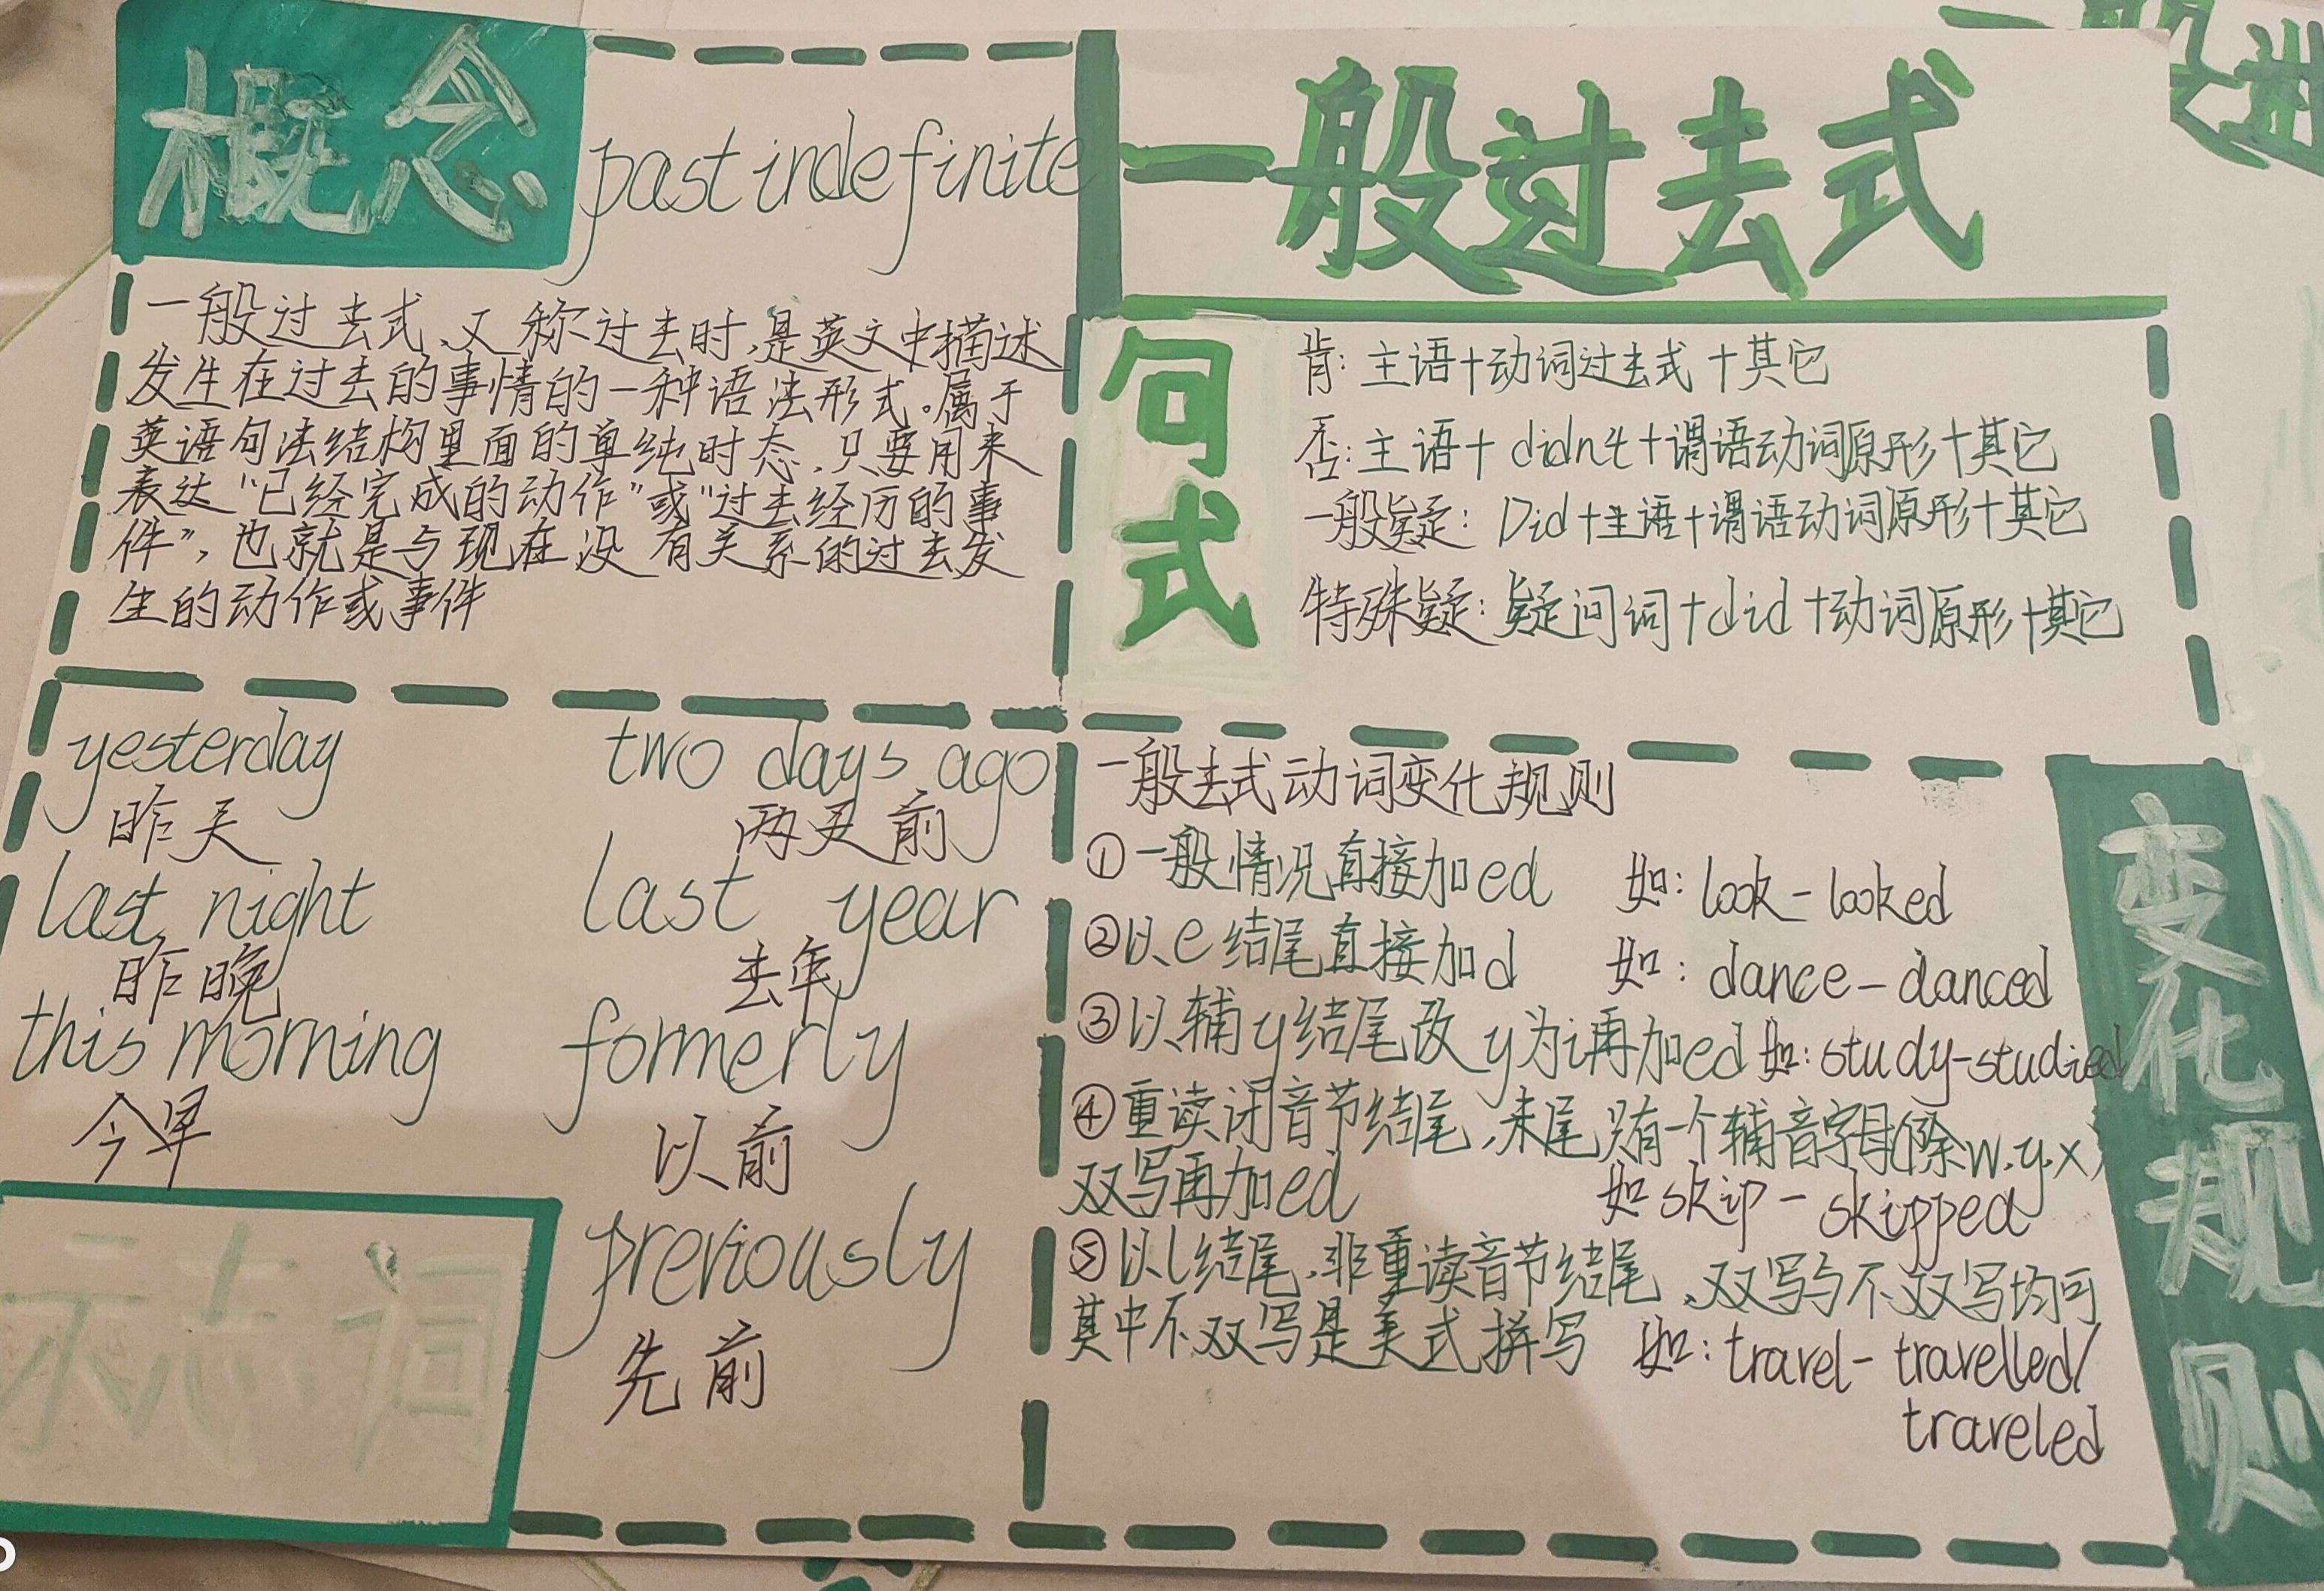 概念
past indefinite
一般过去式,又称过去时,是英文中描述
发生在过去的事情的一种语法形式。属于
英语句法结构里面的单纯时态,只要用来
表达“已经完成的动作”或“过去经历的事
件”,也就是与现在没有关系的过去发
生的动作或事件
一般过去式
句式
肯:主语+动词过去式+其它
否:主语+didn't+谓语动词原形+其它
一般疑:Did+主语+谓语动词原形+其它
特殊疑:疑问词+did+动词原形+其它
yesterday
昨天
last night
昨晚
this morning
今早
two days ago
两天前
last year
去年
formerly
以前
previously
先前
标志词
一般去式动词变化规则
①一般情况直接加ed 如:look-looked
②以e结尾直接加d 如:dance-danced
③以辅y结尾改y为i再加ed 如:study-studied
④重读闭音节结尾,末尾只有一个辅音字母(除w.y.x)
双写再加ed 如skip-skipped
⑤以l结尾,非重读音节结尾,双写与不双写均可
其中不双写是美式拼写 如:travel-travelled/
traveled
变化规则